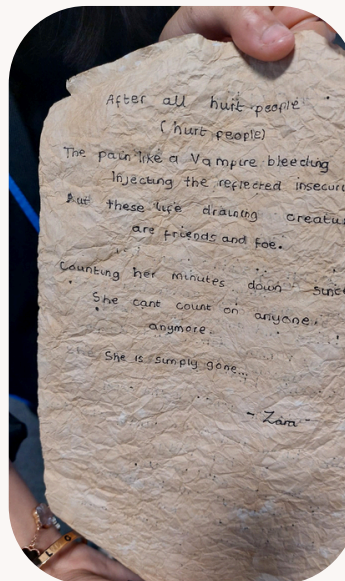 After all hurt people
(hurt people)
The pain like a Vampire bleeding
Injecting the reflected
But these life draining
are friends and foe.
Counting her minutes down
She cant count on anyone,
anymore.
She is simply gone...
- Zara -